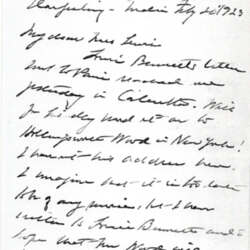 Darjeeling - India Feby 20 1923
My dear Mrs Lewis
Louis Bennett's letter
sent to Paris reached me
yesterday in Calcutta.
and sent it on to
Hollingsworth Wood in New York!
I haven't his address here.
I imagine that it is too late
to be of any service. But I have
written to Louis Bennett and I
hope that Mr Wood will